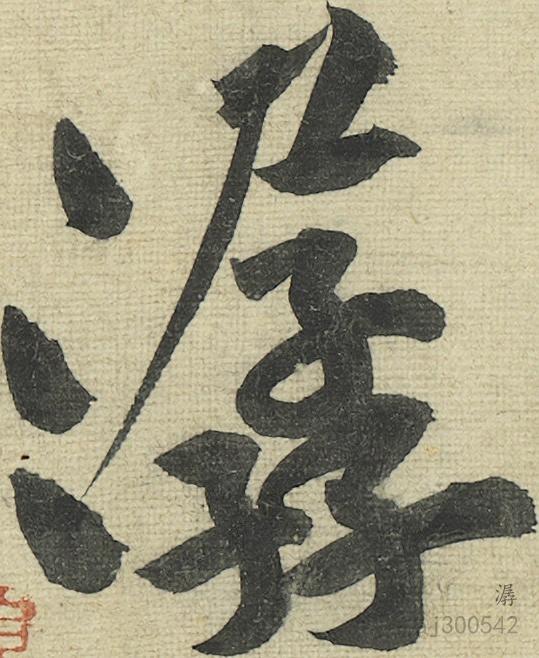 潺
潺
j300542